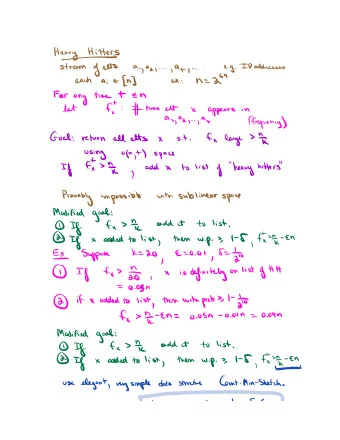 Heavy Hitters
stream of elts a₁, a₂, ..., aₜ, ... e.g. IP addresses
each aᵢ ∈ [n] ex: n = 2⁶⁴
For any time t ≤ n
let fₓᵗ : # times elt x appears in
a₁, a₂, ..., aₜ
(frequency)
Goal: return all elts x s.t. fₓ large > n/k
using o(n,t) space
If fₓᵗ > n/k, add x to list of "heavy hitters"
Provably impossible with sublinear space
Modified goal:
① If fₓ > n/k add it to list.
② If x added to list, then w.p. ≥ 1-δ, fₓᵗ > n/k - εn
Ex Suppose k=20, ε=0.01, δ=1/2¹⁰
① If fₓ > n/20, x is definitely on list of HH
= 0.05n
② if x added to list, then with prob ≥ 1 - 1/2¹⁰
fₓ > n/k - εn = 0.05n - 0.01n = 0.04n
Modified goal:
① If fₓ > n/k add it to list.
② If x added to list, then w.p. ≥ 1-δ, fₓᵗ > n/k - εn
use elegant, very simple data structure Count-Min-Sketch.